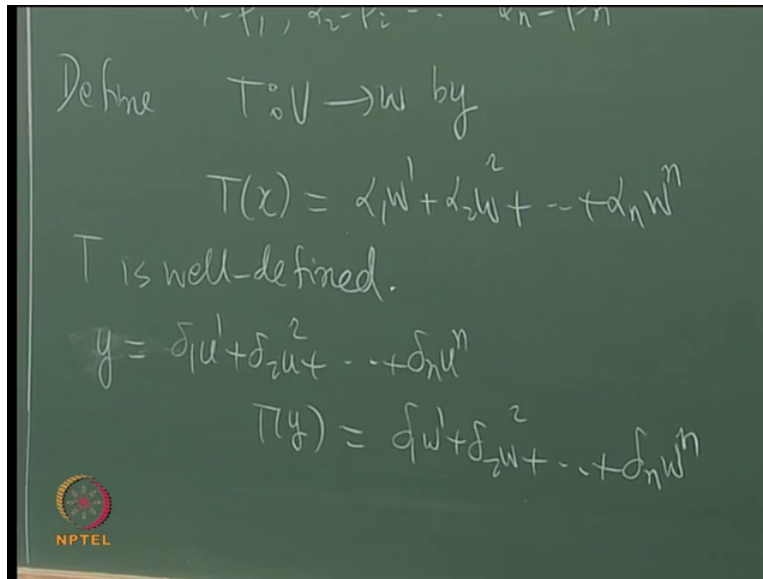 α₁=β₁, α₂=β₂ ... αₙ=βₙ
Define T: V → W by
T(x) = α₁w¹ + α₂w² + ... + αₙwⁿ
T is well-defined.
y = δ₁u¹ + δ₂u² + ... + δₙuⁿ
T(y) = δ₁w¹ + δ₂w² + ... + δₙwⁿ
NPTEL